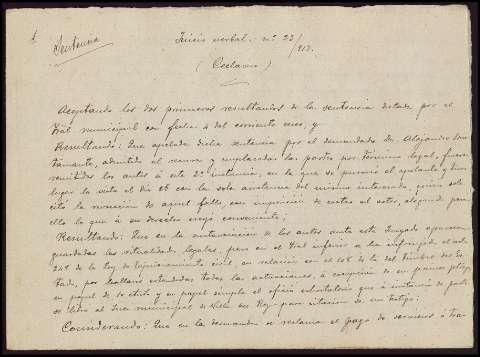 Sentencia
Juicio verbal nº 23/913.
(Esclavos)
Aceptando los dos primeros resultandos de la sentencia dictada por el
tral municipal con fecha 4 del corriente mes; y
Resultando: Que apelada dicha sentencia por el demandado Dn Alejandro
admitido el recurso y emplazadas las partes por término legal, fueron
remitidos los autos á esta 2ª instancia, en la que se personó el apelante y tuvo
lugar la vista el dia 16 con la sola asistencia del mismo interesado, quien soli-
citó la revocación de aquel fallo, con imposición de costas al actor, alegando para
ello lo que á su derecho creyó conveniente;
Resultando: Que en la sustanciación de los autos ante este Juzgado aparecen
guardadas las ritualidades legales, pero en el tral inferior se ha infringido el art.
248 de la ley de Enjuiciamiento civil en relación con el 108 de la del Timbre del Es-
tado, por hallarse extendidas todas las actuaciones, á excepción de un primer pliego
en papel de oficio y en papel simple el oficio exhortatorio que á instancia de parte
se libró al Juez municipal de Villa del Rey para citación de un testigo;
Considerando: Que en la demanda se reclama el pago de servicios ó tra-